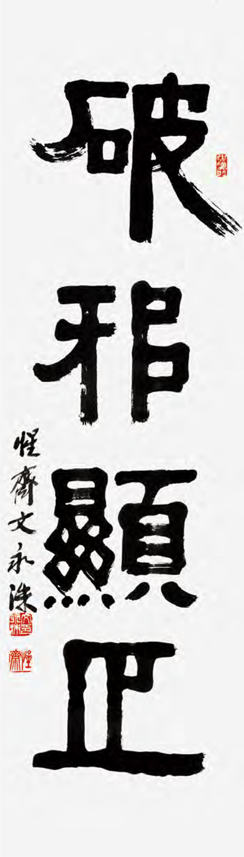 破邪顯正
惺齋文永洙